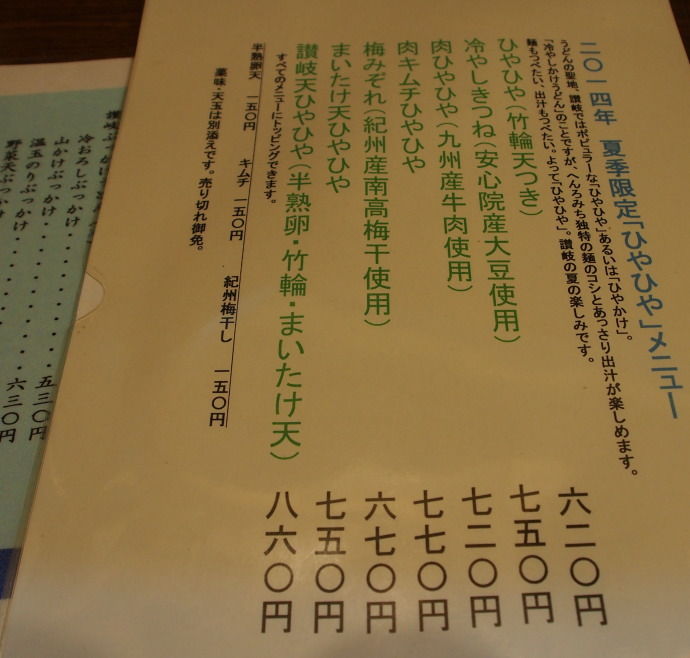 二〇一四年 夏季限定「ひやひや」メニュー
うどんの聖地、讃岐ではポピュラーな「ひやひや」あるいは「ひやかけ」。
「冷やしかけうどん」のことですが、へんろみち独特の麺のコシとあっさり出汁が楽しめます。
麺もつべたい、出汁もつべたい。よって「ひやひや」。讃岐の夏の楽しみです。
ひやひや(竹輪天つき) 六二〇円
冷やしきつね(安心院産大豆使用) 七五〇円
肉ひやひや(九州産牛肉使用) 七二〇円
肉キムチひやひや 七七〇円
梅みぞれ(紀州産南高梅干使用) 六七〇円
まいたけ天ひやひや 七五〇円
讃岐天ひやひや(半熟卵・竹輪・まいたけ天) 八六〇円
すべてのメニューにトッピングできます。
半熟卵天 一五〇円 キムチ 一五〇円 紀州梅干し 一五〇円
薬味・天玉は別添えです。売り切れ御免。
讃岐ぶっかけ
冷おろしぶっかけ・・・・・・五三〇円
山かけぶっかけ・・・・・・六三〇円
温玉のりぶっかけ・・・
野菜天ぶっかけ